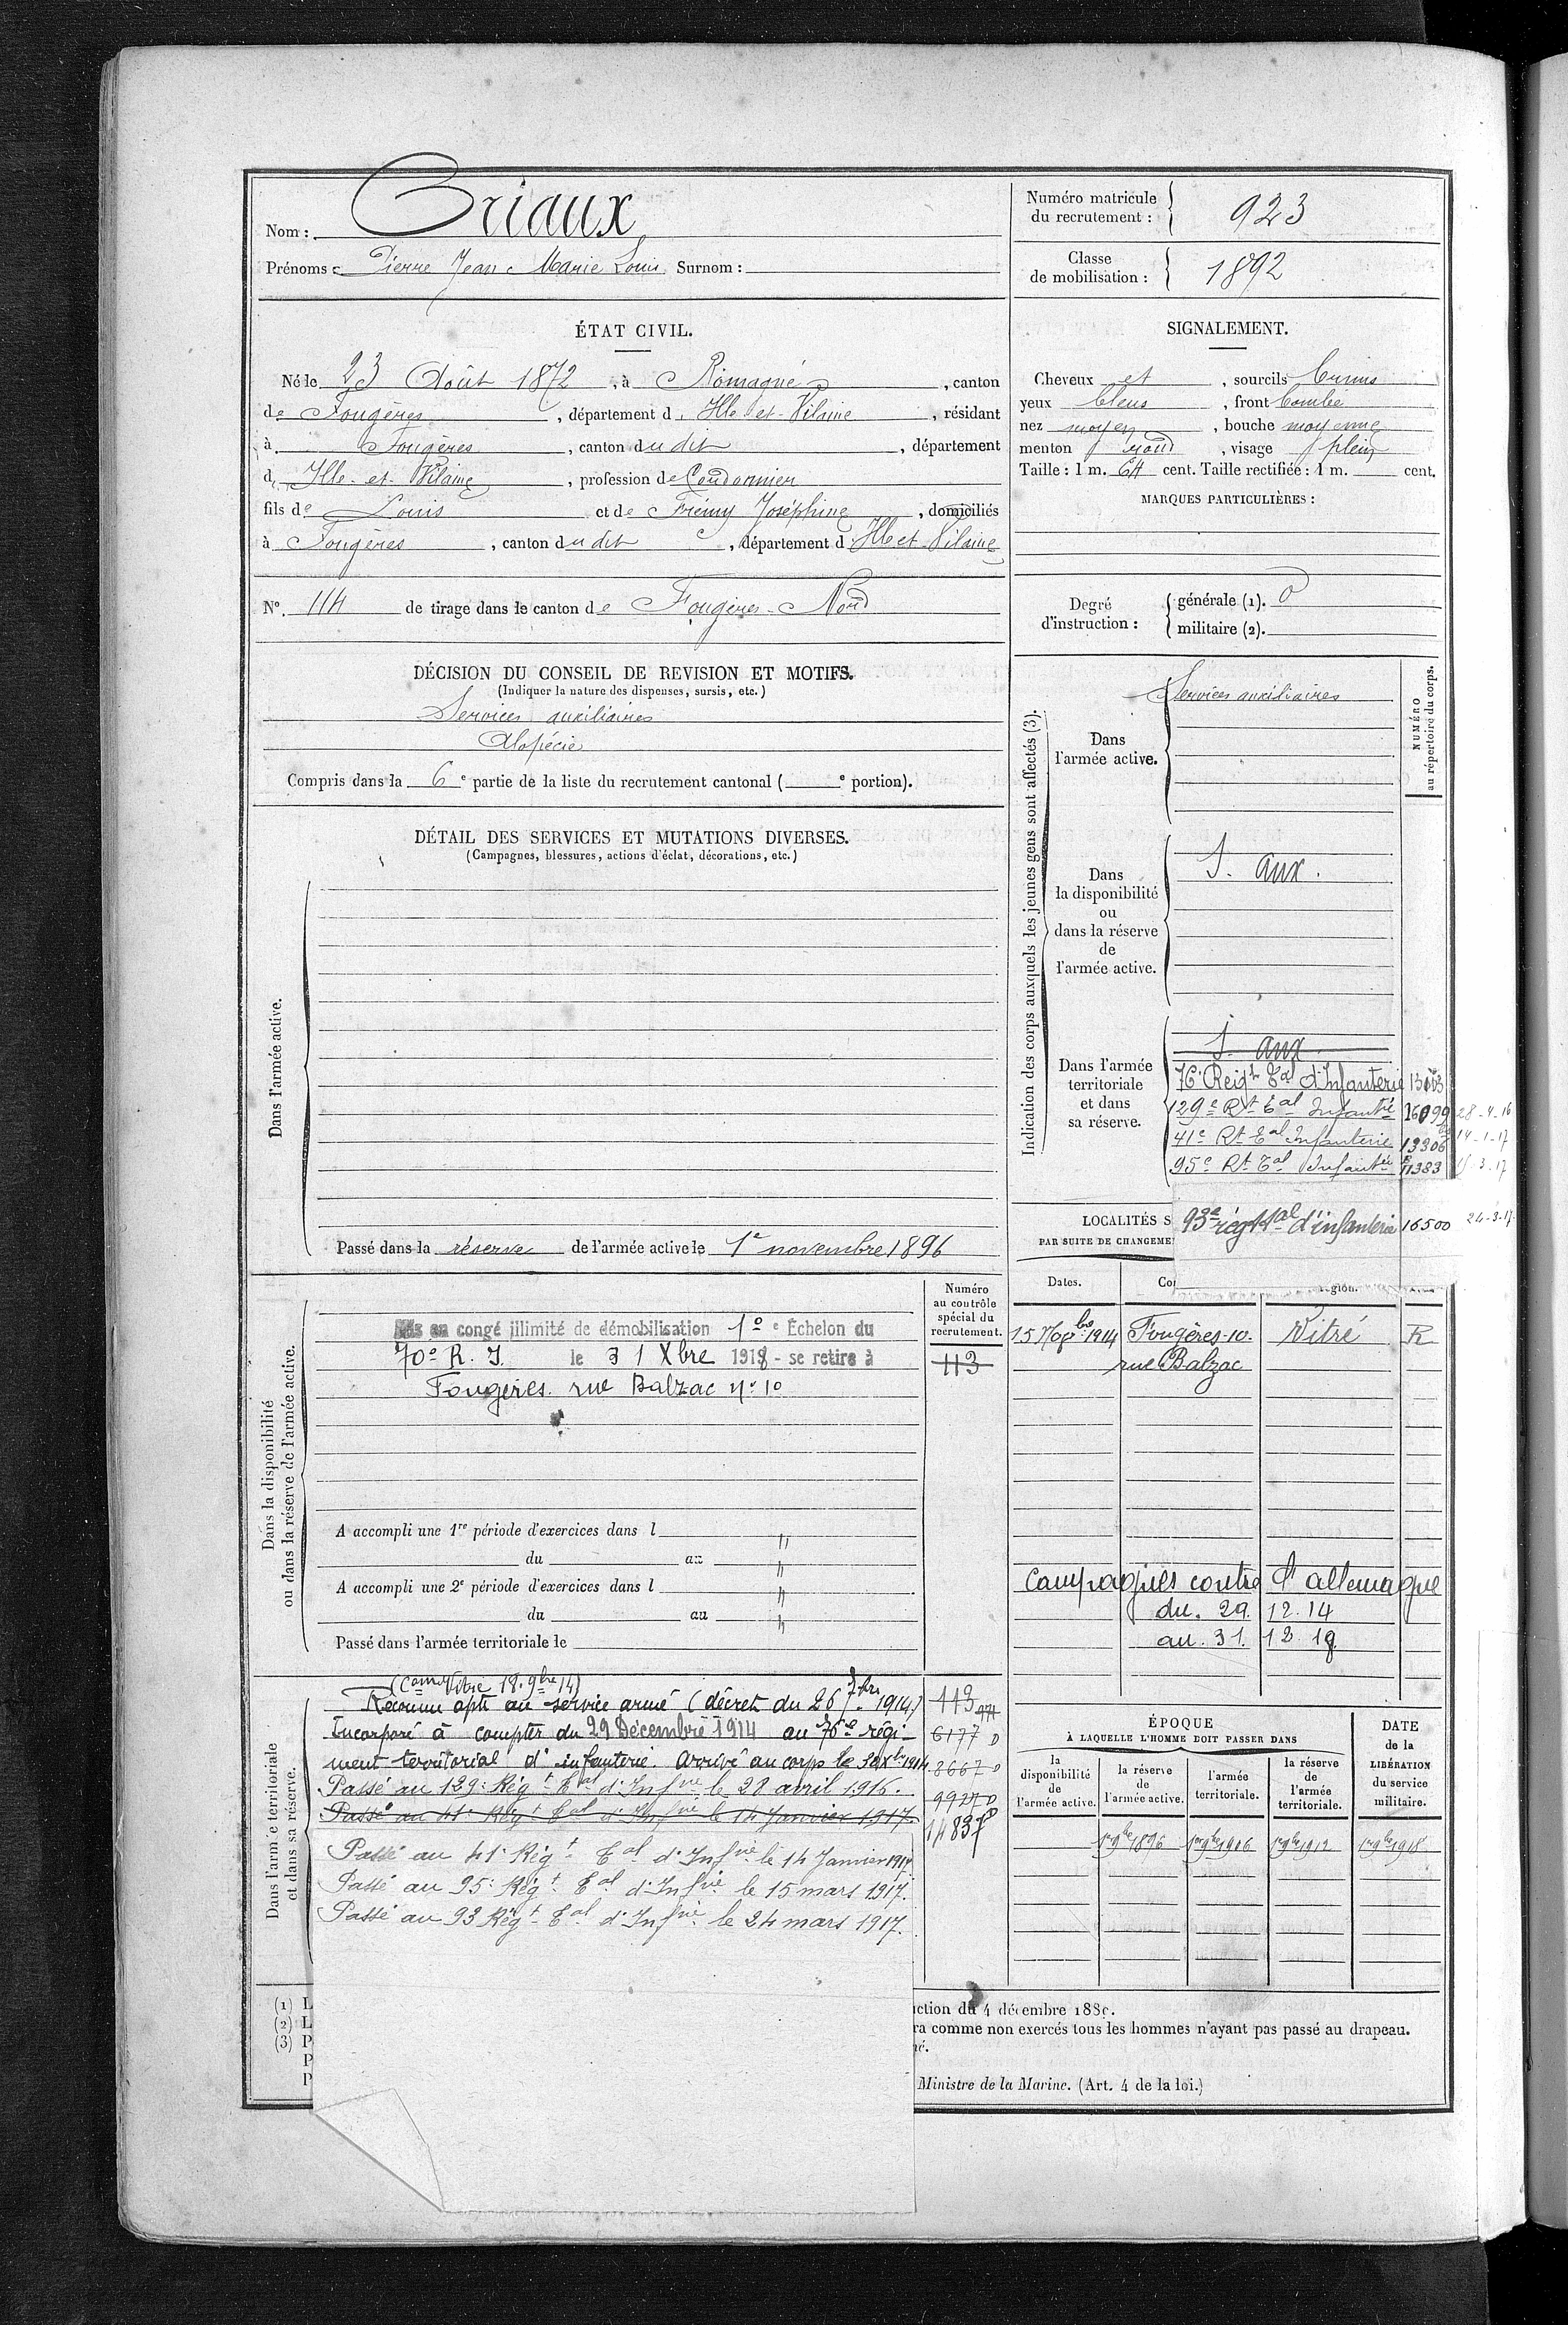 Nom : Oriaux
Prénoms : Pierre Jean Marie Louis Surnom :
Numéro matricule du recrutement : 923
Classe de mobilisation : 1892
ÉTAT CIVIL.
Né le 23 Août 1872, à Romagné, canton
de Fougères, département d'Ille-et-Vilaine, résidant
à Fougères, canton dudit, département
d'Ille-et-Vilaine, profession de Cordonnier
fils de Louis et de Frémy Joséphine, domiciliés
à Fougères, canton dudit, département d'Ille et Vilaine
N° 114 de tirage dans le canton de Fougères-Nord
SIGNALEMENT.
Cheveux et, sourcils bruns
yeux bleus, front bombé
nez moyen, bouche moyenne
menton rond, visage plein
Taille : 1 m. 64 cent. Taille rectifiée : 1 m. cent.
MARQUES PARTICULIÈRES :
Degré d'instruction : générale (1). 0
militaire (2).
DÉCISION DU CONSEIL DE REVISION ET MOTIFS.
(Indiquer la nature des dispenses, sursis, etc.)
Services auxiliaires
Alopécie
Compris dans la 6e partie de la liste du recrutement cantonal ( e portion).
DÉTAIL DES SERVICES ET MUTATIONS DIVERSES.
(Campagnes, blessures, actions d'éclat, décorations, etc.)
Dans l'armée active.
Passé dans la réserve de l'armée active le 1e novembre 1896
Indication des corps auxquels les jeunes gens sont affectés (3).
NUMÉRO au répertoire du corps.
Dans l'armée active.
Services auxiliaires
Dans la disponibilité ou dans la réserve de l'armée active.
S. aux.
Dans l'armée territoriale et dans sa réserve.
S. aux.
76e Reigt Tal d'Infanterie
129e Rt Tal Infantie 16099 28-4-16
41e Rt Tal Infanterie 13306 14-1-17
95e Rt Tal Infantie 11383 15-3-17
93e régt tal d'infanterie 16500 24-3-17
LOCALITÉS S
PAR SUITE DE CHANGEME
Dates. Co région.
15 Novbre 1914 Fougères-10. Vitré R
rue Balzac
Campagnes contre l'allemagne
du. 29. 12. 14
au. 31. 12. 18
Dans la disponibilité ou dans la réserve de l'armée active.
Numéro au contrôle spécial du recrutement.
113
Mis en congé illimité de démobilisation 1o e Échelon du
70e R. I. le 31 Xbre 1918 - se retire à
Fougères. rue Balzac No 10
A accompli une 1re période d'exercices dans l "
du au "
A accompli une 2e période d'exercices dans l "
du au "
Passé dans l'armée territoriale le
Dans l'armée territoriale et dans sa réserve.
(Comon Vitré 18. 9bre 14)
Reconnu apte au service armé (décret du 26 7bre 1914)
Incorporé à compter du 29 Décembre 1914 au 76e régi-
ment territorial d'infanterie. Arrivé au corps le 30 Xbre 1914.
Passé au 129e Régt Tal d'Infrie le 28 avril 1916.
Passé au 41e Régt Tal d'Infrie le 14 Janvier 1917.
Passé au 41e Régt Tal d'Infrie le 14 Janvier 1917.
Passé au 95e Régt Tal d'Infrie le 15 mars 1917.
Passé au 93 Régt Tal d'Infrie le 24 mars 1917.
113
6177
8667
ÉPOQUE
À LAQUELLE L'HOMME DOIT PASSER DANS
la disponibilité de l'armée active.
la réserve de l'armée active.
l'armée territoriale.
la réserve de l'armée territoriale.
DATE de la LIBÉRATION du service militaire.
1er 9bre 1896 1er 9bre 1906 1er 9bre 1912 1er 9bre 1918
(1) L
(2) L
(3) P
P
P
ction du 4 décembre 1889.
ra comme non exercés tous les hommes n'ayant pas passé au drapeau.
né.
Ministre de la Marine. (Art. 4 de la loi.)